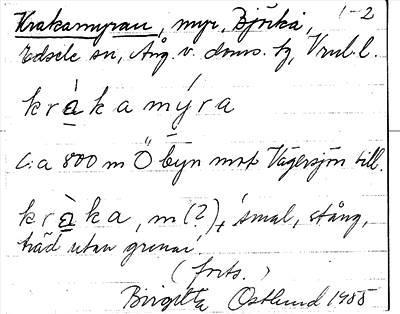 1-2
Krakamyran, myr, Björkå,
Edsele sn, Ång. v. doms. tg, Vrnl. l.
kràkamýra
C:a 800 m Ö byn mot Vägersjön till.
kràka, m(?), 'smal, stång,
träd utan grenar'
(forts.)
Birgitta Östlund 1955